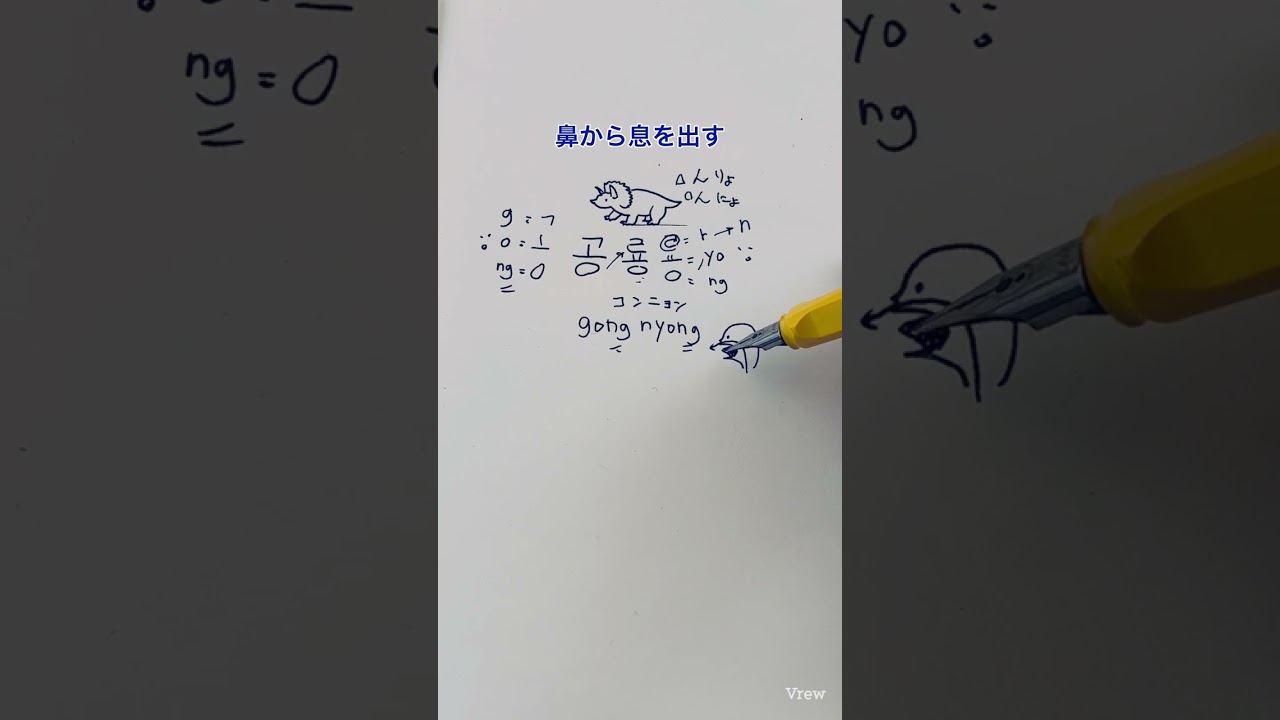 鼻から息を出す
△んりょ
□んにょ
g = ㄱ
o = ㅗ
ng = ㅇ
공룡
ㄹ = r → n
ㅛ = yo
ㅇ = ng
コンニョン
gong nyong
Vrew
ng = o
yo
ng